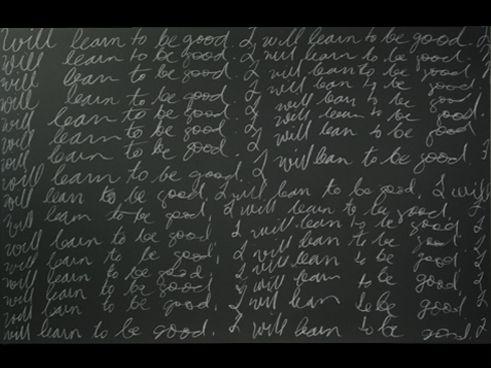 will learn to be good. I will learn to be good. I
will learn to be good. I will learn to be good.
will learn to be good. I will lean to be good. I
will learn to be good. I will lean to be good
will learn to be good. I will learn to be good.
will learn to be good. I will lean to be good
will learn to be good. I will lean to be good.
will learn to be good. I will lean to be good. I
will learn to be good, I will lean to be good, I will
will learn to be good, I will learn to be good, I
will learn to be good, I will learn to be good, I
will learn to be good, I will lean to be good, I
will learn to be good, I will lean to be good, I
will learn to be good, I will lean to be good, I
will learn to be good, I will learn to be good, I
will learn to be good, I will learn to be good, I